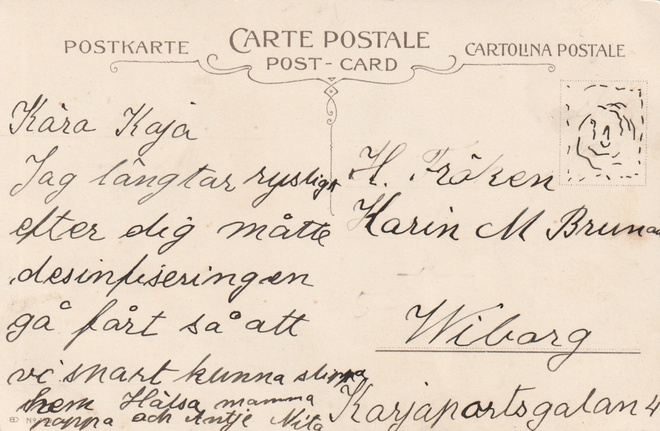 POSTKARTE
CARTE POSTALE
POST-CARD
CARTOLINA POSTALE
Kära Kaja
Jag långtar rysligt
efter dig måtte
desinfiseringen
gå fårt så att
vi snart kunna slippa
hem Hälsa mamma
pappa och Antje Nita
H. Fröken
Karin M Brunou
Wiborg
Karjaportsgatan 4